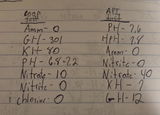 COOP
TEST
Amm- 0
GH- 301
KH- 80
PH- 6.8-7.2
Nitrate- 10
Nitrite- 0
Chlorine- 0
API
TEST
PH- 7.6
HPH- 7.8
Amm- 0
Nitrite- 0
Nitrate- 40
KH- ?
GH- 12